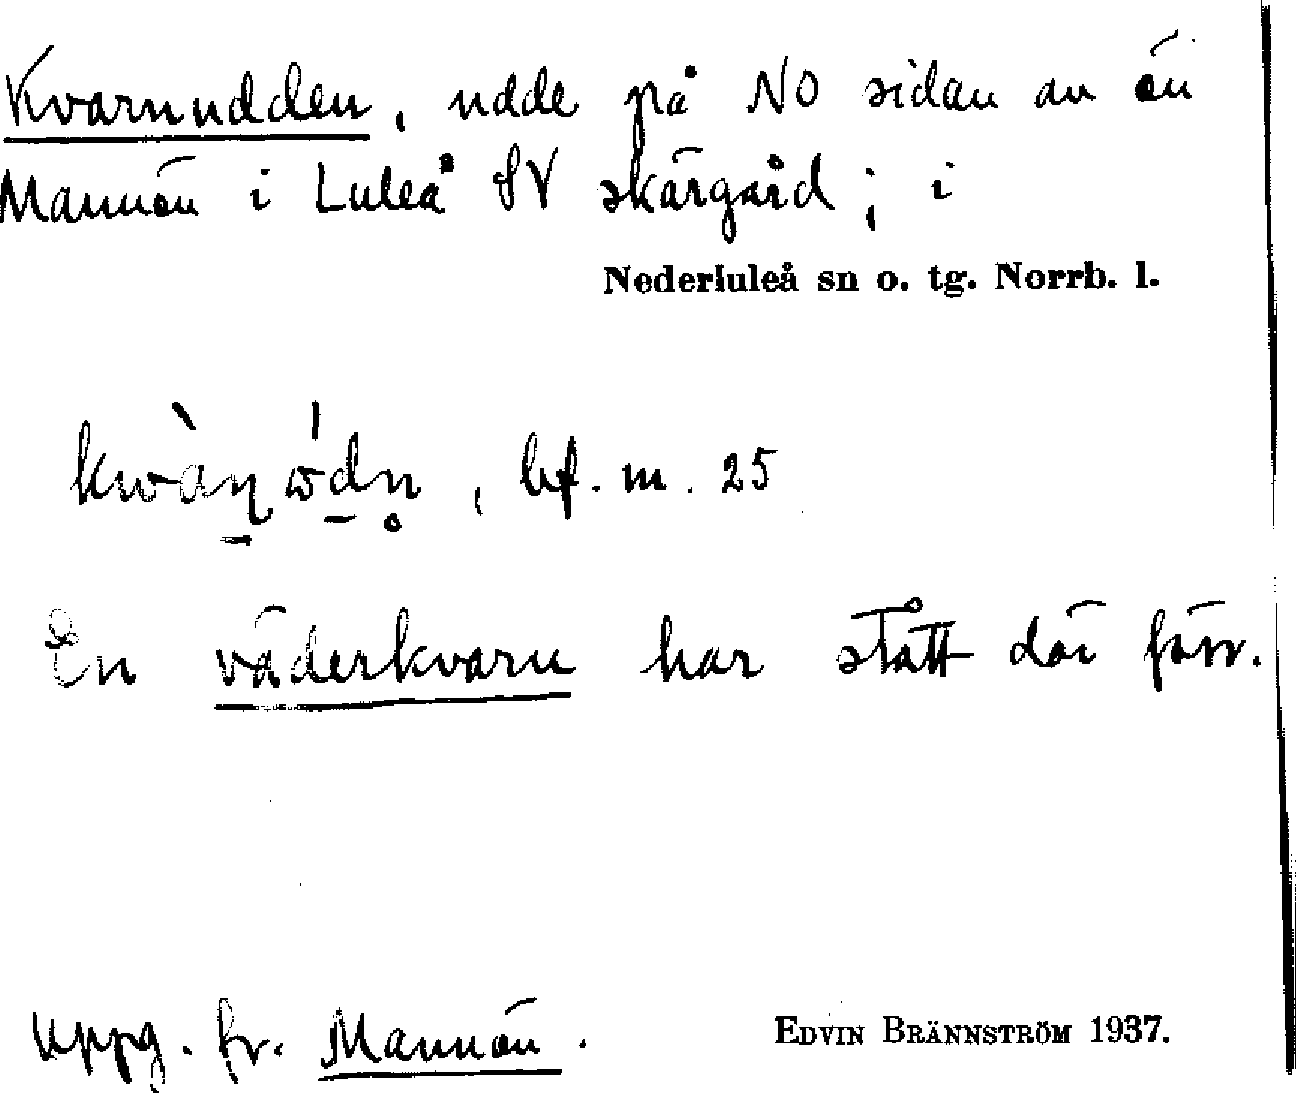 Kvarnudden, udde på NO sidan av ön
Mannön i Luleå SV skärgård; i
Nederluleå sn o. tg. Norrb. l.
bf. m. 25
En väderkvarn har stått där förr.
Uppg. fr. Mannön.
EDVIN BRÄNNSTRÖM 1937.